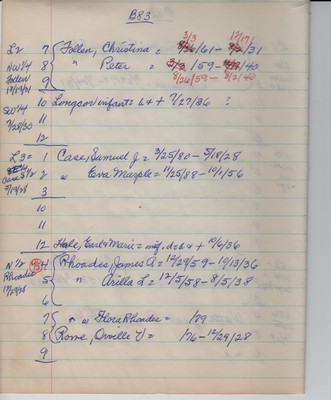 B83
3/3 12/7/
L2 7 Follen, Christina = 61 - 31
NW 1/4 8 " Peter = /59 - /40
Follen 9 8/26/59 - 8/2/40
SW 1/4 10 Longcor infant = b. & + 7/27/36 ?
7/28/30 11
12
L3 = 1 Case, Samuel J = 3/25/80 - 5/18/28
Case S 1/2 2 " Eva Marple = 11/25/88 - 10/1/56
5/19/28 3
10
11
12 Hale, Earl & Marie = inf. d = b. & + 10/6/36
N 1/2 4 Rhoades, James A = 12/29/59 - 10/13/36
Rhoades 5 " Arilla L = 12/5/58 - 8/5/38
12/29/28 6
7 " w Flora Rhoades = /89
8 Rowe, Orville V) = /76 - 12/29/28
9